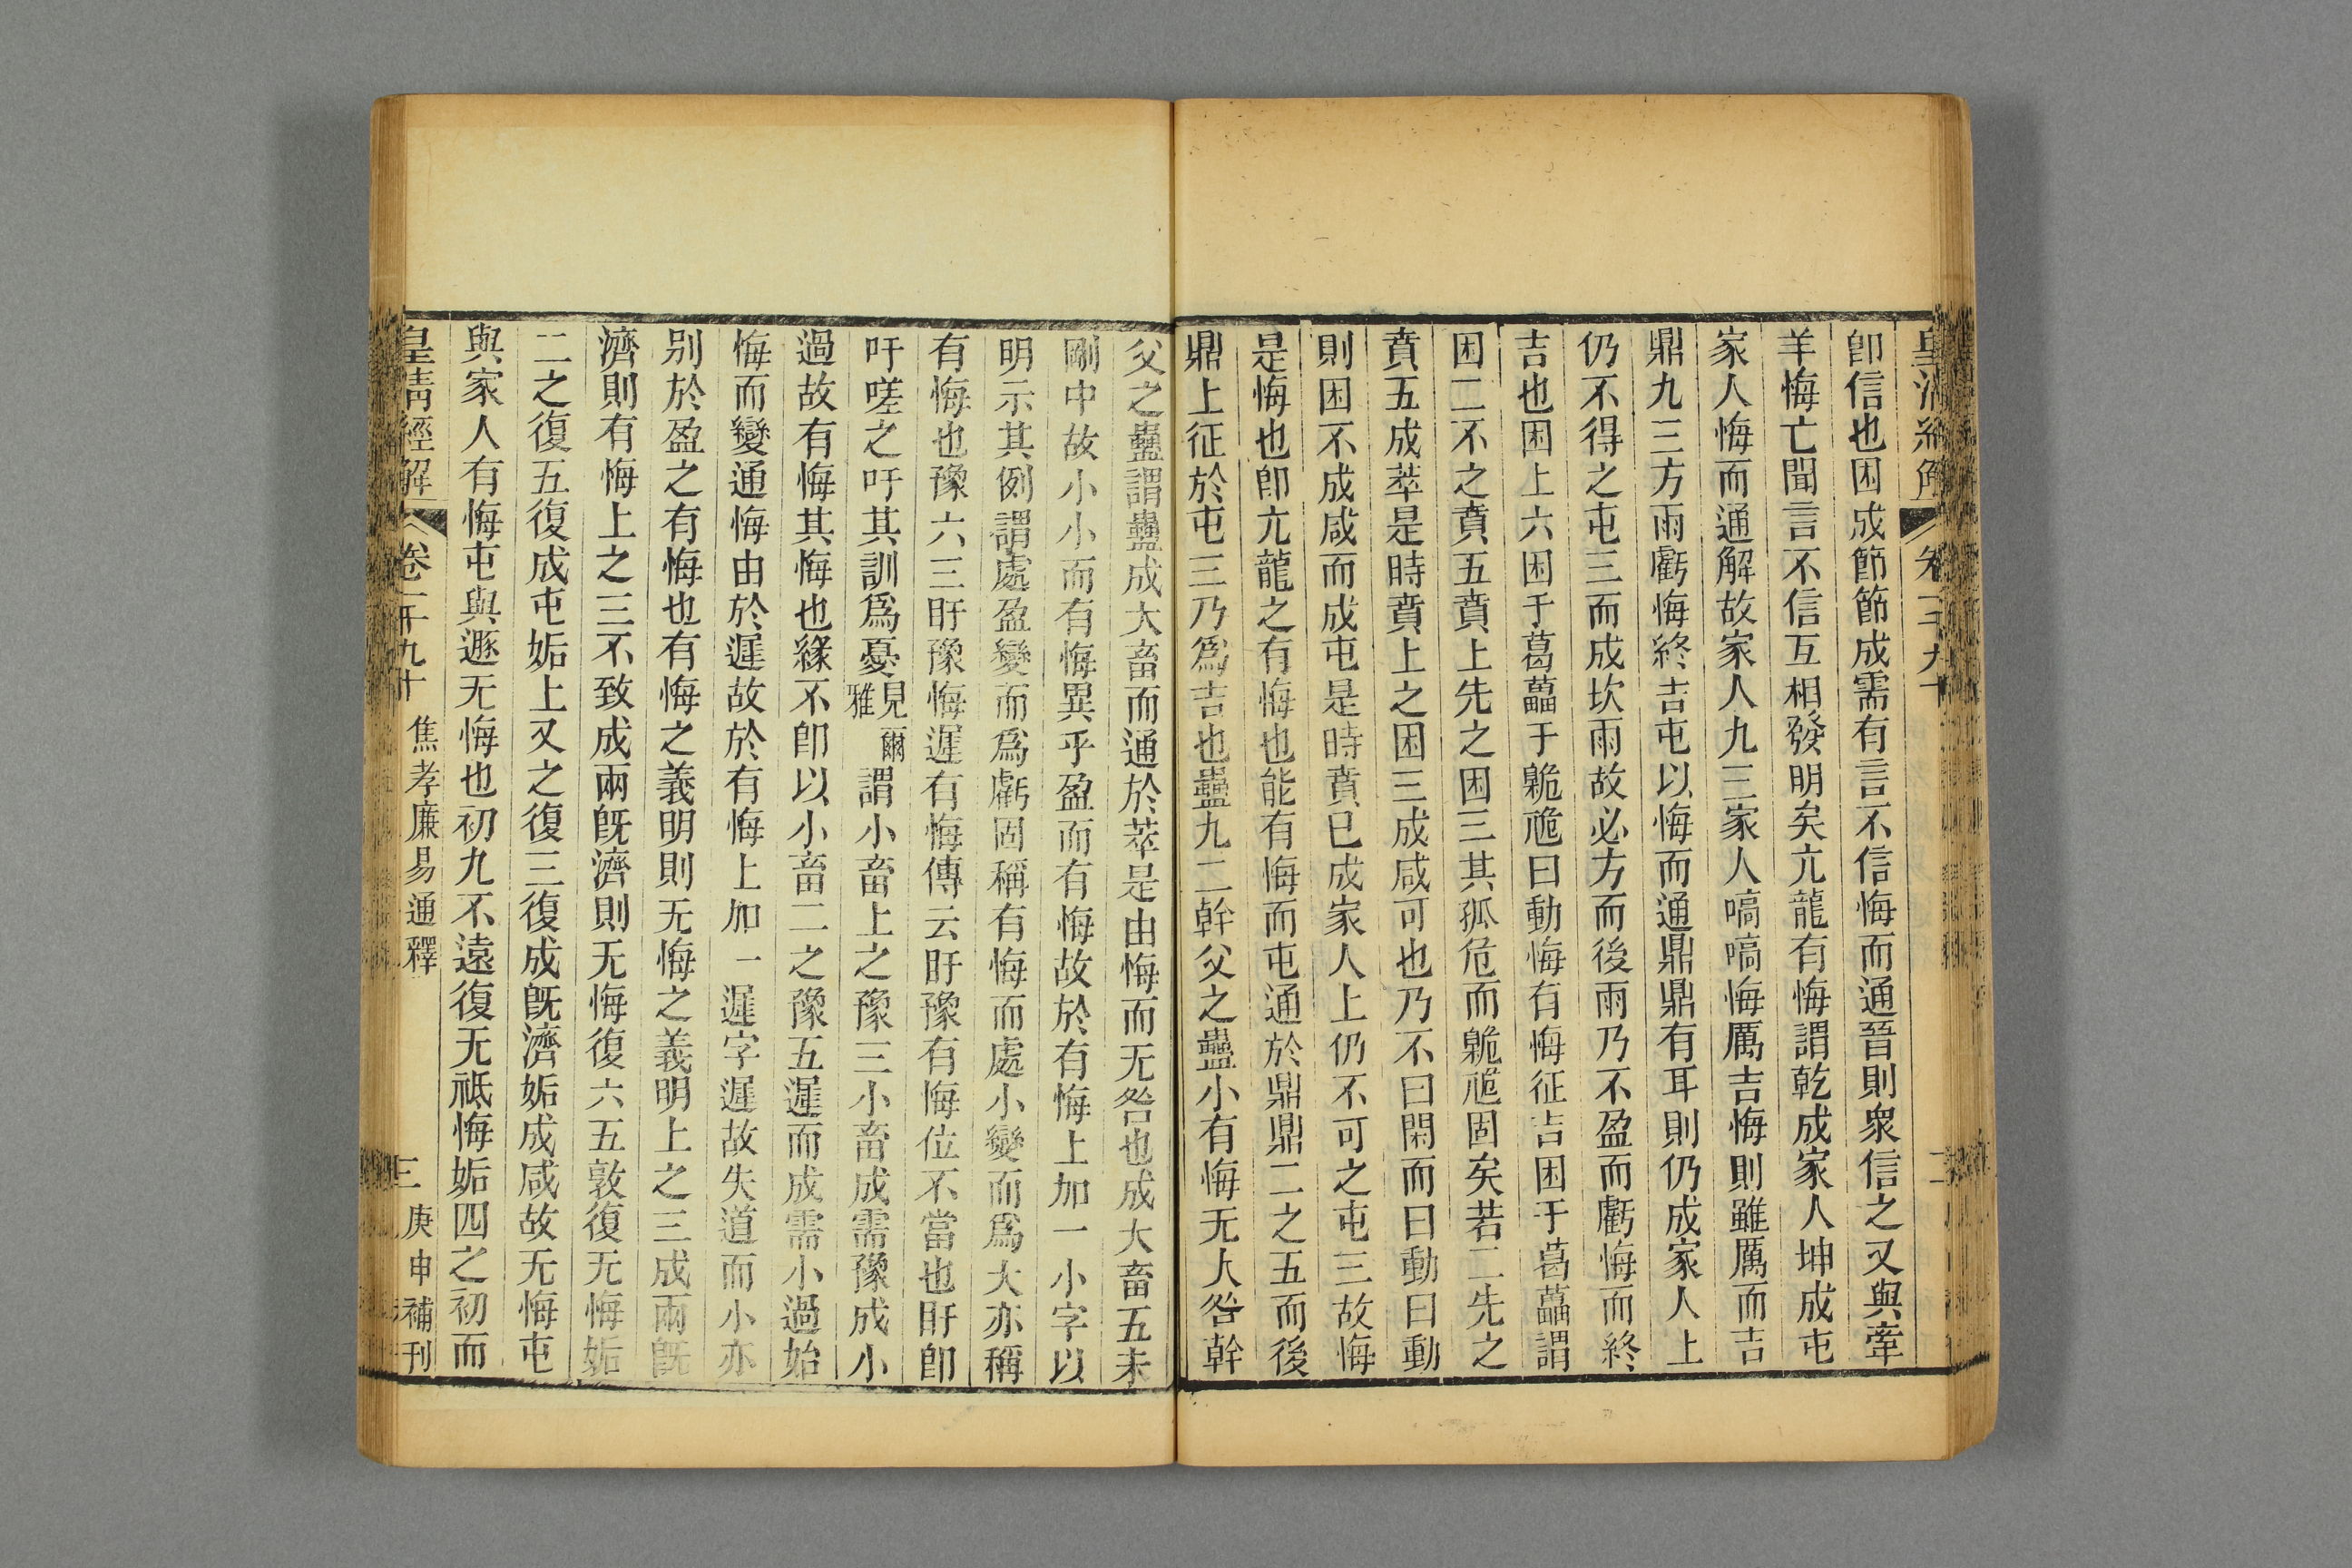 皇清經解 卷一千九十 二
卽信也困成節節成需有言不信悔而通晉則衆信之又與牽
羊悔亡聞言不信互相發明矣亢龍有悔謂乾成家人坤成屯
家人悔而通解故家人九三家人嗃嗃悔厲吉悔則雖厲而吉
鼎九三方雨虧悔終吉屯以悔而通鼎鼎有耳則仍成家人上
仍不得之屯三而成坎雨故必方而後雨乃不盈而虧悔而終
吉也困上六困于葛藟于臲卼曰動悔有悔征吉困于葛藟謂
困二不之賁五賁上先之困三其孤危而臲卼固矣若二先之
賁五成萃是時賁上之困三成咸可也乃不曰閑而曰動曰動
則困不成咸而成屯是時賁已成家人上仍不可之屯三故悔
是悔也卽亢龍之有悔也能有悔而屯通於鼎鼎二之五而後
鼎上征於屯三乃爲吉也蠱九二幹父之蠱小有悔无大咎幹
父之蠱謂蠱成大畜而通於萃是由悔而无咎也成大畜五未
剛中故小小而有悔異乎盈而有悔故於有悔上加一小字以
明示其例謂處盈變而爲虧固稱有悔而處小變而爲大亦稱
有悔也豫六三盱豫悔遲有悔傳云盱豫有悔位不當也盱卽
吁嗟之吁其訓爲憂見爾雅謂小畜上之豫三小畜成需豫成小
過故有悔其悔也緣不卽以小畜二之豫五遲而成需小過始
悔而變通悔由於遲故於有悔上加一遲字遲故失道而小亦
别於盈之有悔也有悔之義明則无悔之義明上之三成兩旣
濟則有悔上之三不致成兩旣濟則无悔復六五敦復无悔姤
二之復五復成屯姤上又之復三復成旣濟姤成咸故无悔屯
與家人有悔屯與遯无悔也初九不遠復无祗悔姤四之初而
皇清經解 卷一千九十 焦孝廉易通釋 三 庚申補刊